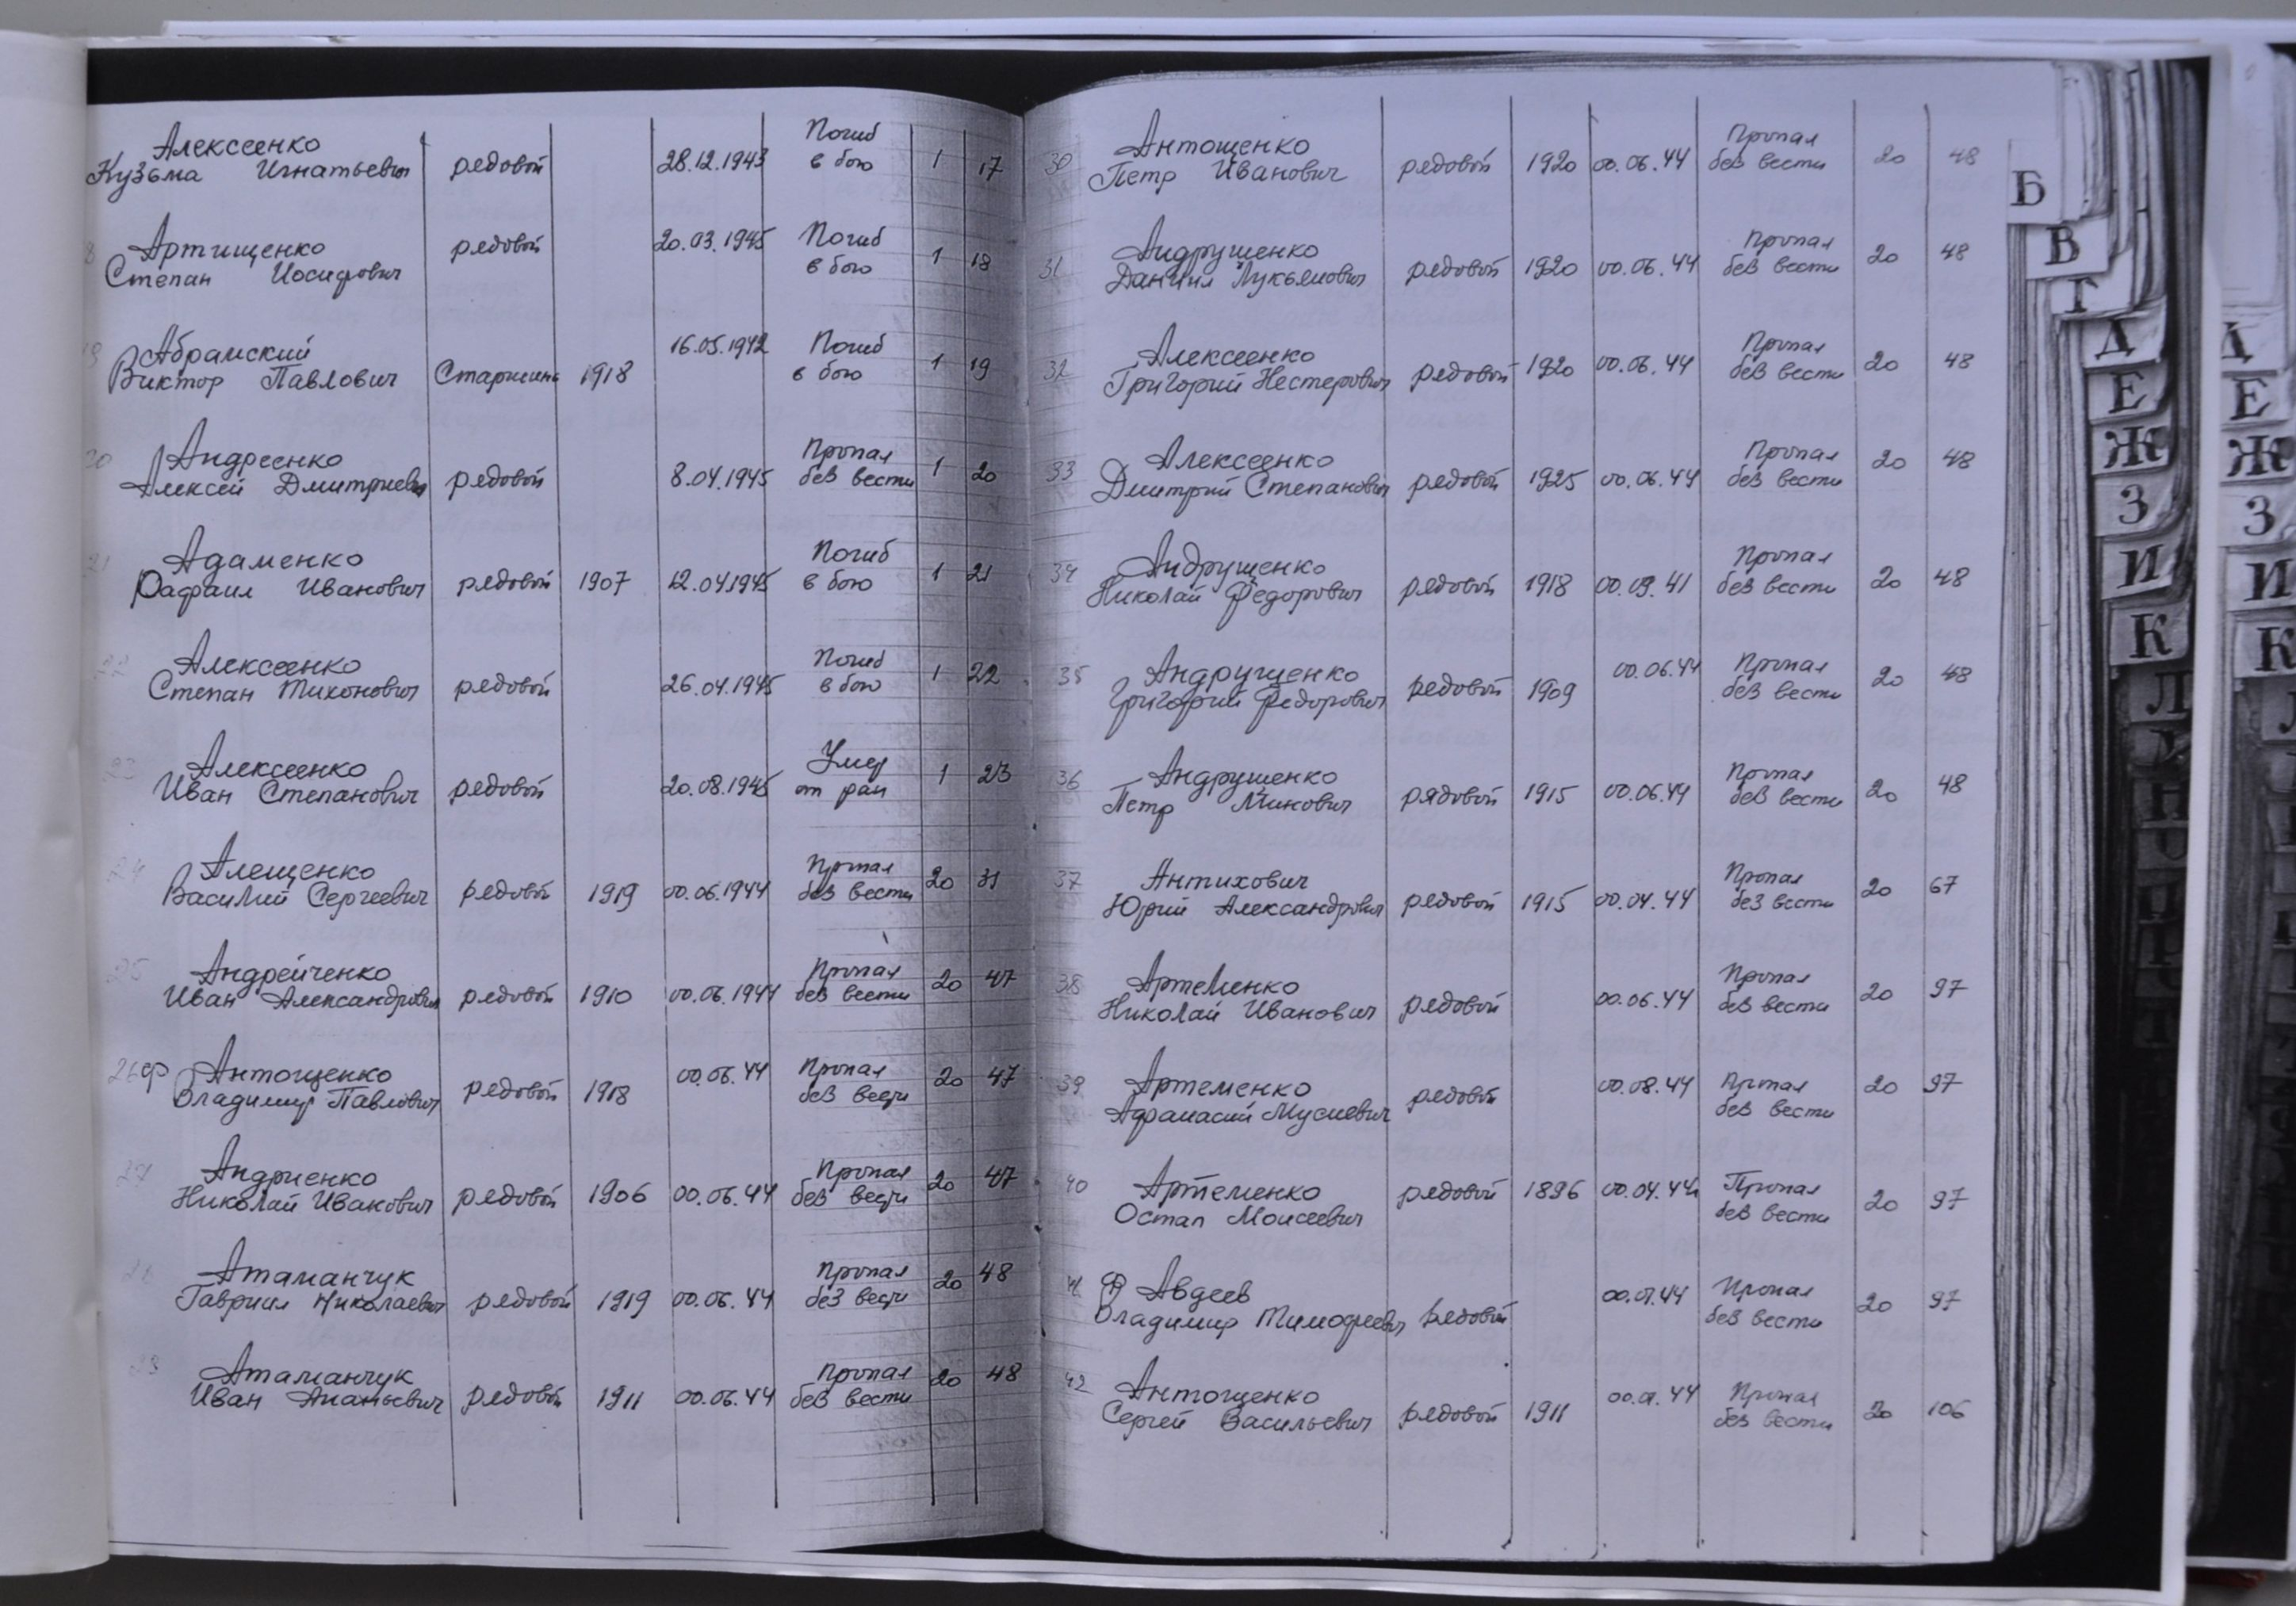 Алексеенко
Кузьма Игнатьевич редовой 28.12.1943 Погиб в бою 1 17
Артищенко
Степан Иосифович редовой 20.03.1945 Погиб в бою 1 18
Абрамский
Виктор Павлович Старшина 1918 16.05.1942 Погиб в бою 1 19
20 Андреенко
Алексей Дмитриевич редовой 8.04.1945 Пропал без вести 1 20
21 Адаменко
Рафаил Иванович редовой 1907 12.04.1945 Погиб в бою 1 21
22 Алексеенко
Степан Тихонович редовой 26.04.1945 Погиб в бою 1 22
23 Алексеенко
Иван Степанович редовой 20.08.1945 Умер от ран 1 23
24 Алещенко
Василий Сергеевич редовой 1919 00.06.1944 Пропал без вести 20 31
25 Андрейченко
Иван Александрович редовой 1910 00.06.1944 Пропал без вести 20 47
26 ф Антощенко
Владимир Павлович редовой 1918 00.06.44 Пропал без вести 20 47
27 Андриенко
Николай Иванович редовой 1906 00.06.44 Пропал без вести 20 47
Атаманчук
Гавриил Николаевич редовой 1919 00.06.44 Пропал без вести 20 48
Атаманчук
Иван Ананьевич редовой 1911 00.06.44 Пропал без вести 20 48
30 Антощенко
Петр Иванович редовой 1920 00.06.44 Пропал без вести 20 48
31 Андрущенко
Даниил Лукьянович редовой 1920 00.06.44 Пропал без вести 20 48
32 Алексеенко
Григорий Нестерович редовой 1920 00.06.44 Пропал без вести 20 48
33 Алексеенко
Дмитрий Степанович редовой 1925 00.06.44 Пропал без вести 20 48
34 Андрущенко
Николай Федорович редовой 1918 00.09.41 Пропал без вести 20 48
35 Андрущенко
Григорий Федорович редовой 1909 00.06.44 Пропал без вести 20 48
36 Андрущенко
Петр Минович рядовой 1915 00.06.44 Пропал без вести 20 48
37 Антихович
Юрий Александрович редовой 1915 00.04.44 Пропал без вести 20 67
38 Артеменко
Николай Иванович редовой 00.06.44 Пропал без вести 20 97
39 Артеменко
Афанасий Мусиевич редовой 00.08.44 Пропал без вести 20 97
40 Артеменко
Остап Моисеевич редовой 1896 00.04.44 Пропал без вести 20 97
41 ф Авдеев
Владимир Тимофеевич редовой Пропал без вести 20 97
42 Антощенко
Сергей Васильевич редовой 1911 Пропал без вести 20 106
Б
В
Г
Д
Е
Ж
З
И
К
Л
Д
Е
Ж
З
И
К